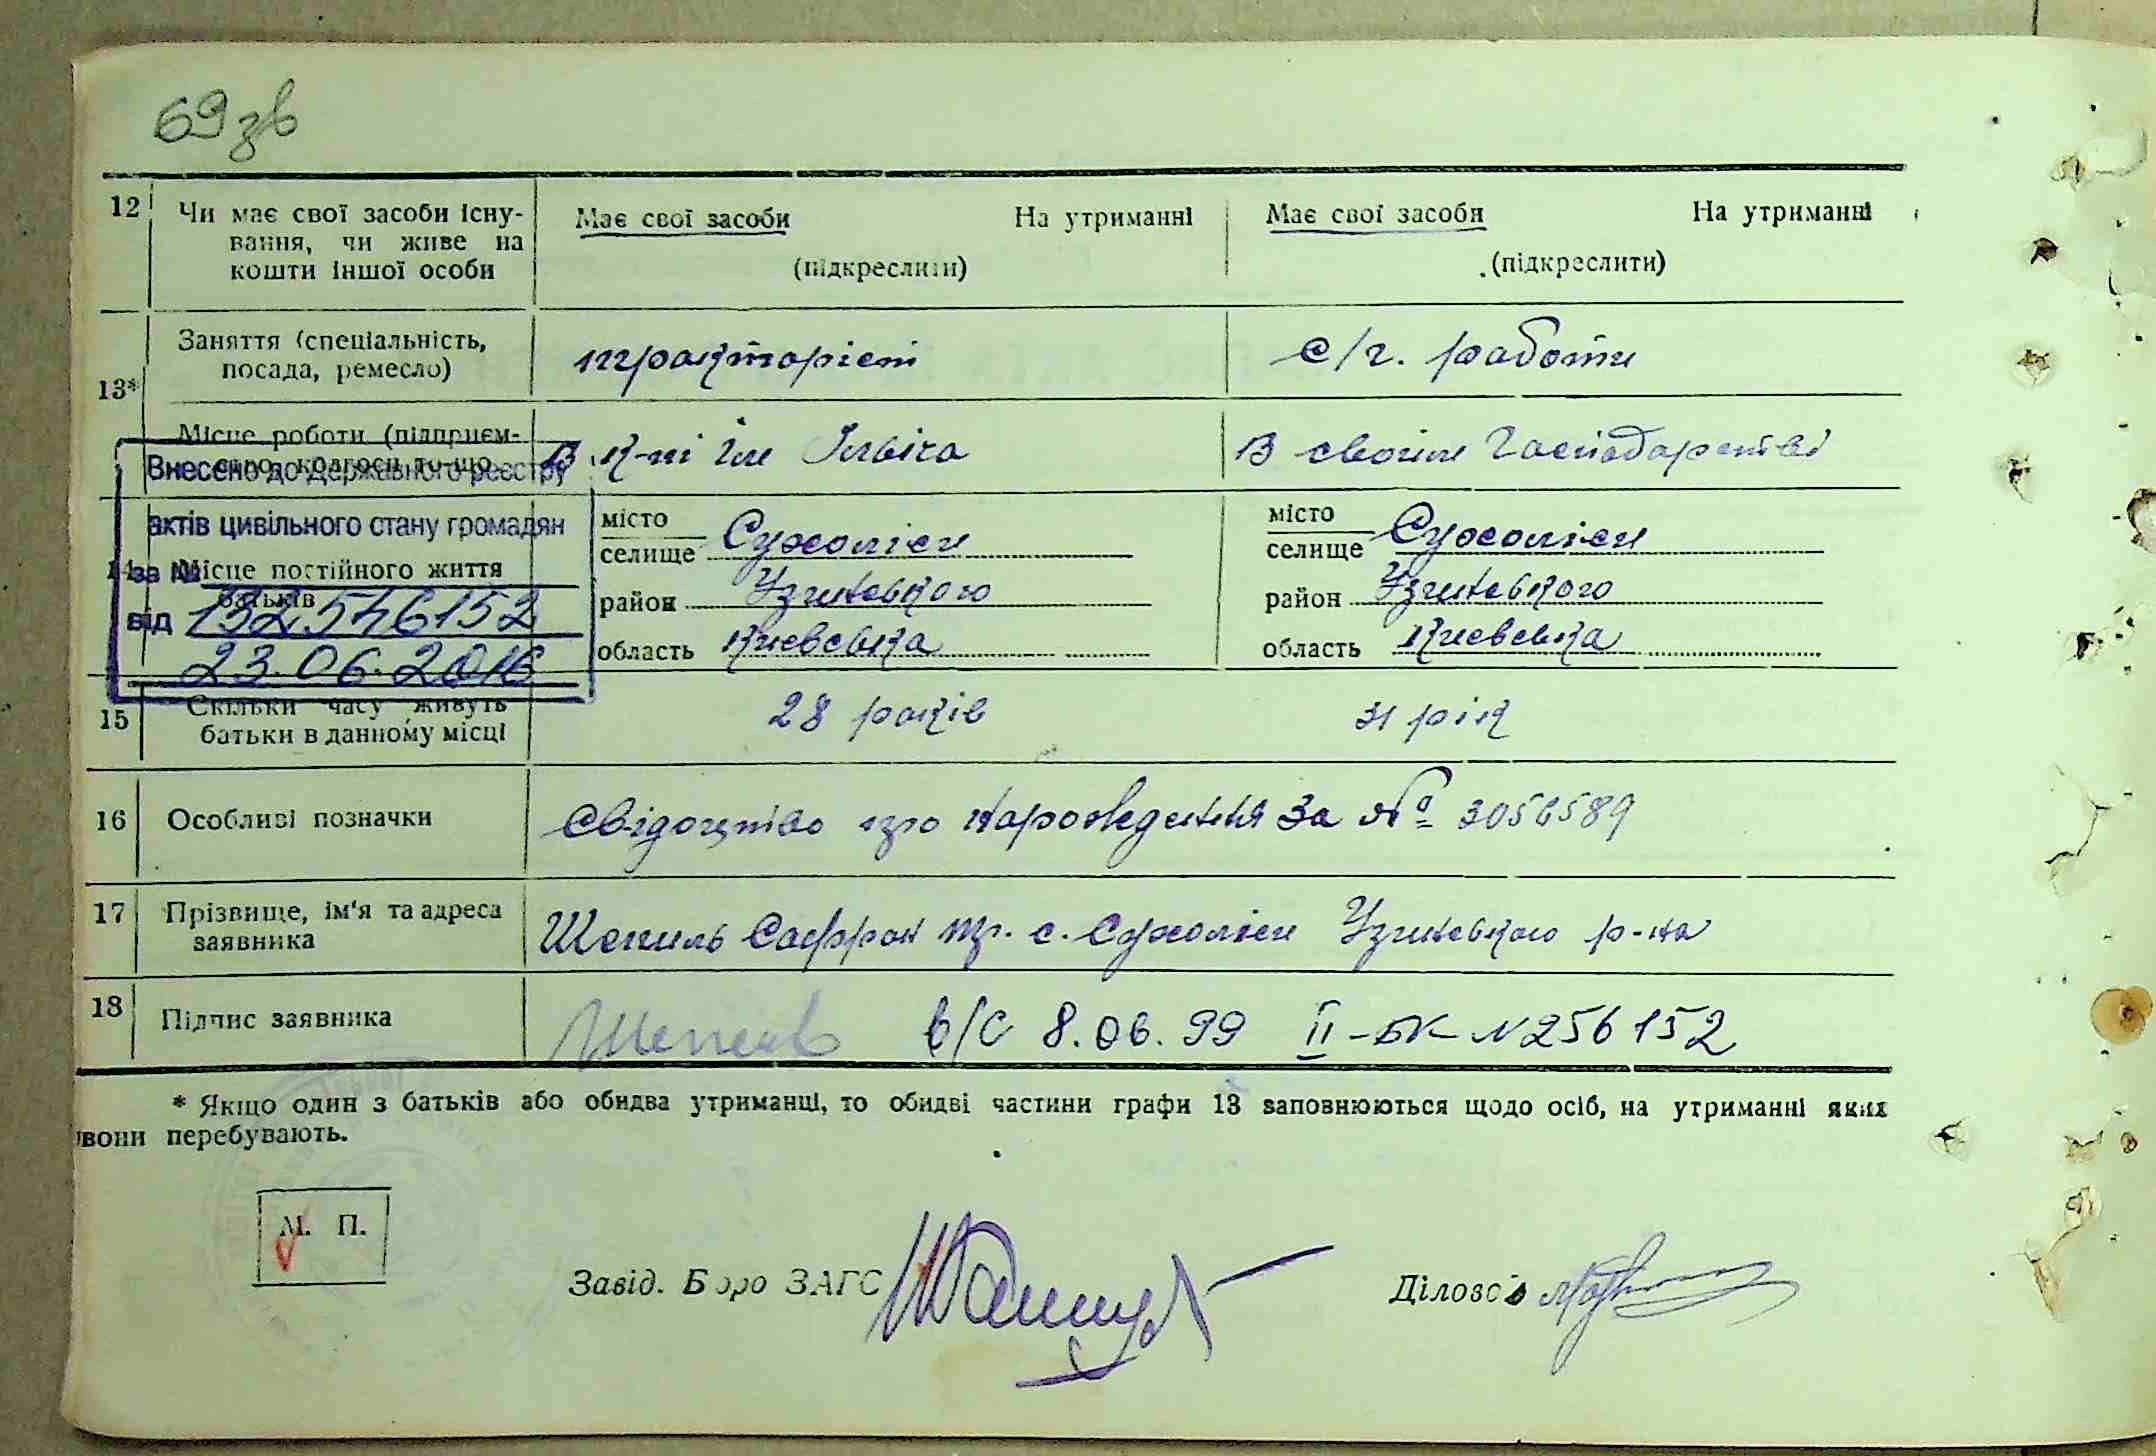 69зв
12 Чи має свої засоби існу- Має свої засоби На утриманні Має свої засоби На утриманні
вання, чи живе на
кошти іншої особи (підкреслити) (підкреслити)
13* Заняття (спеціальність, тракторіст с/г. работи
посада, ремесло)
Місце роботи (підприєм- В к-пі ім Ілвіча В своїм Господарстві
ство, колгосп то-що
Внесено до державного реєстру
актів цивільного стану громадян
за № 132546152
від 23.06.2016
14 Місце постійного життя місто селище Сухоліси місто селище Сухоліси
батьків район Узинсвкого район Узинсвкого
область Києвсвка область Києвсвка
15 Скільки часу живуть 28 років 31 рік
батьки в данному місці
16 Особливі позначки Свідоцтво про народження За № 3056589
17 Прізвище, ім'я та адреса Шепиль Сафрон пр. с. Сухоліси Узинсвкого р-на
заявника
18 Підпис заявника в/с 8.06.99 II-БК N256152
* Якщо один з батьків або обидва утриманці, то обидві частини графи 13 заповнюються щодо осіб, на утриманні яких
вони перебувають.
М. П.
Завід. Бюро ЗАГС Діловод